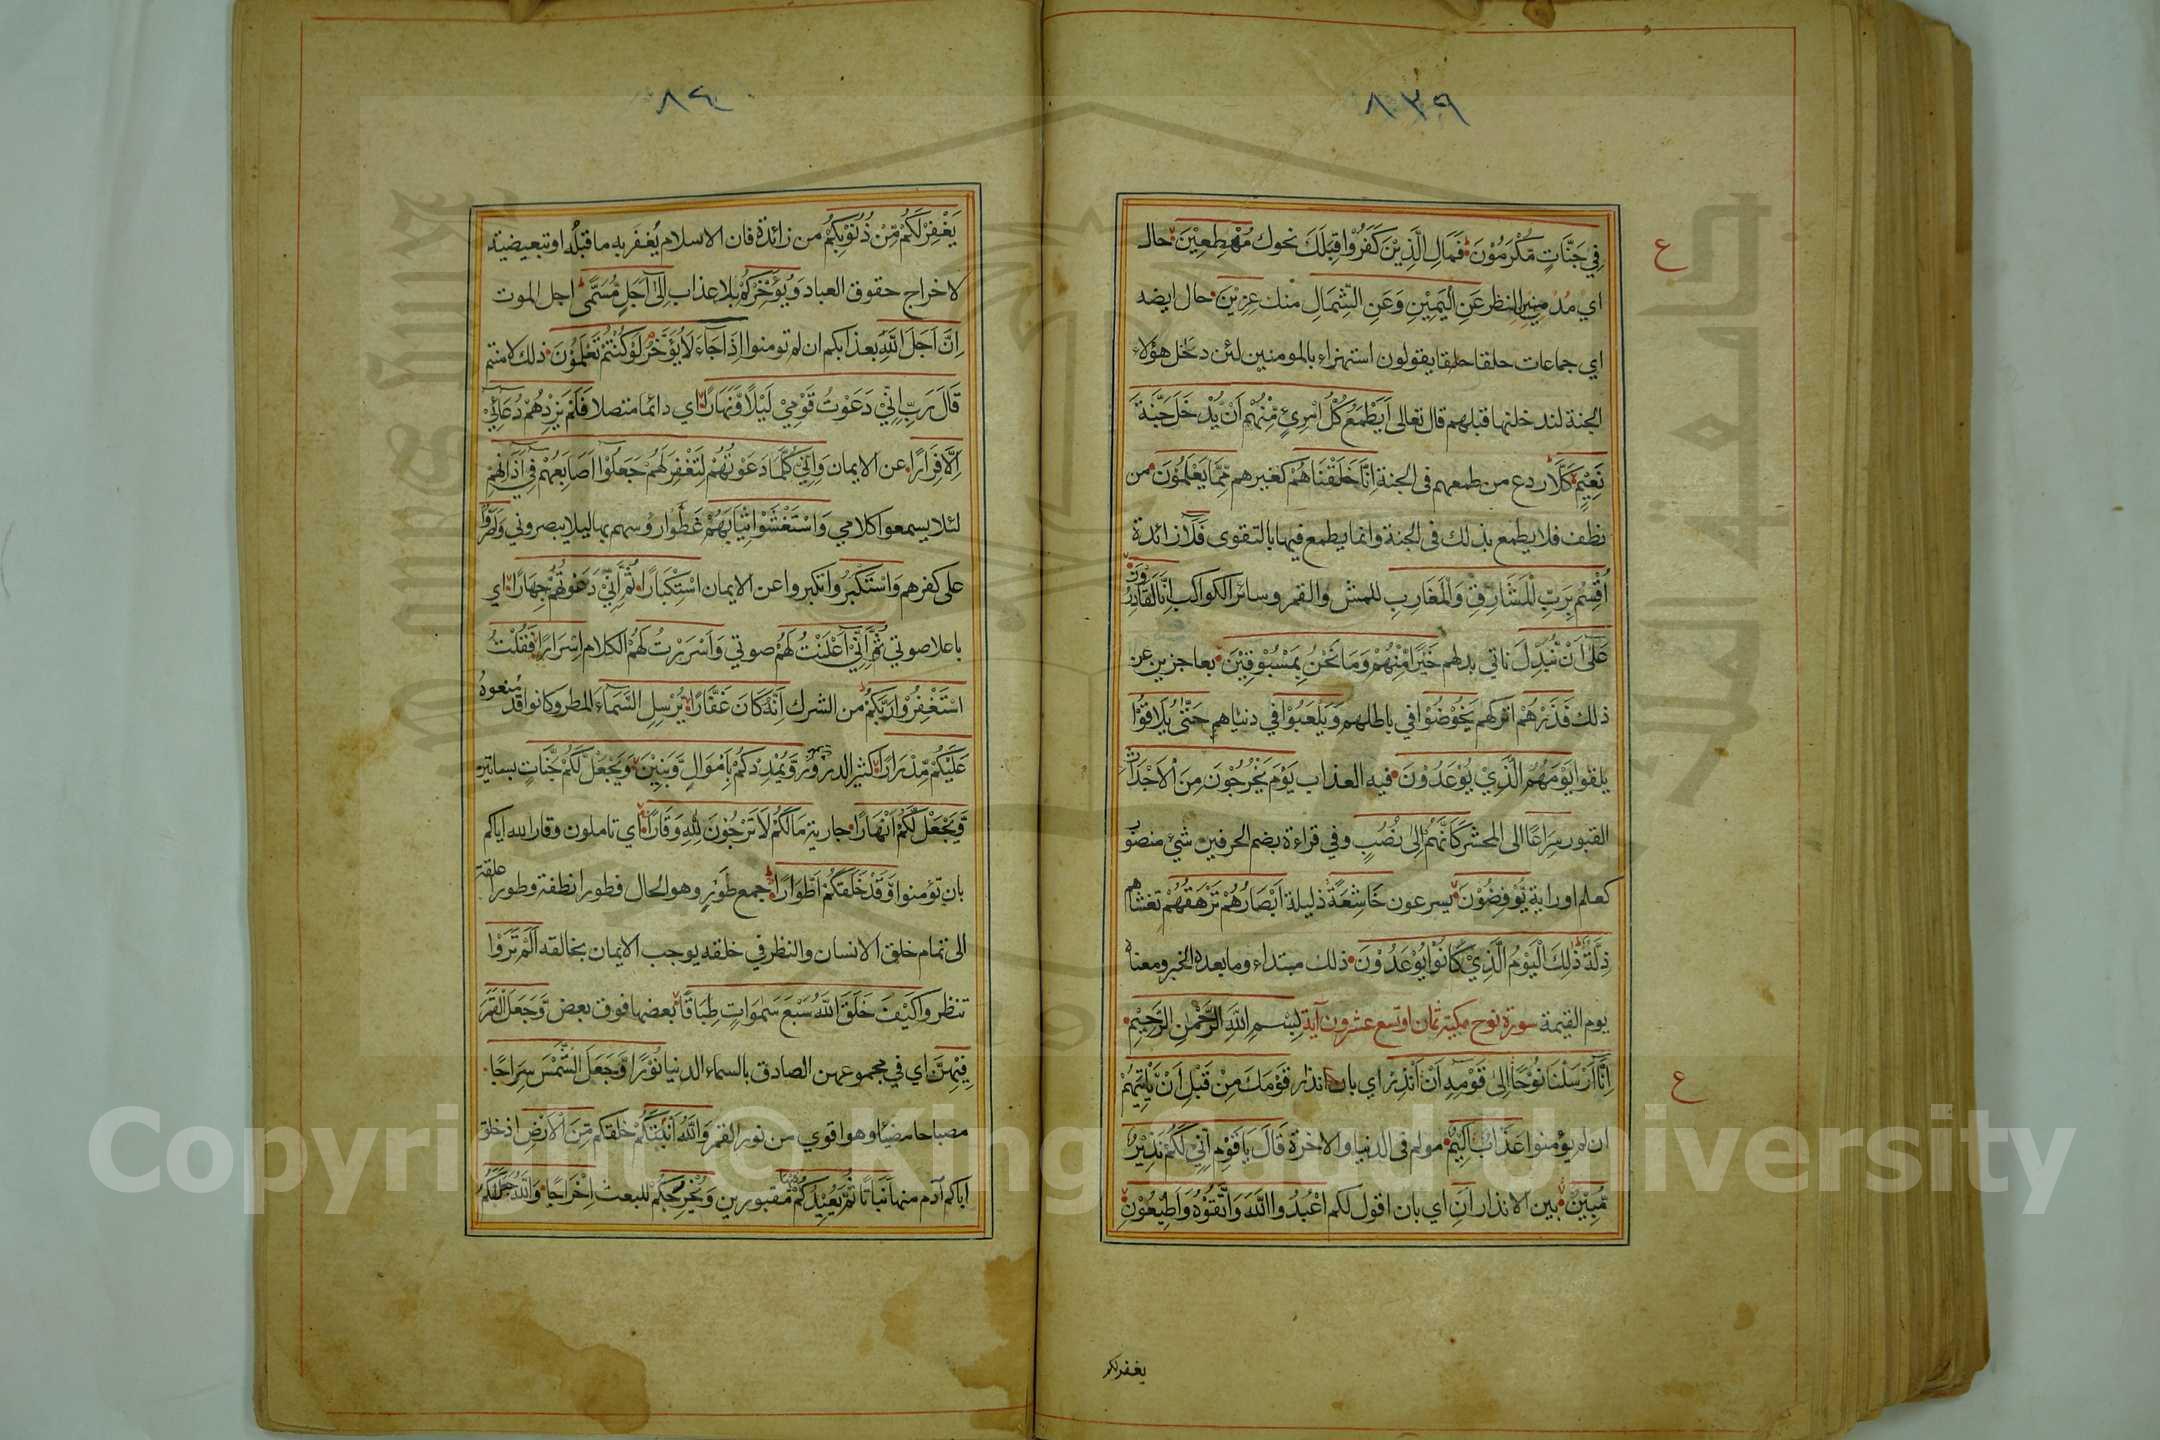 ٨٣٩
فِي جَنَّاتٍ مُّكْرَمُوْنَ فَمَالِ الَّذِيْنَ كَفَرُوْا قِبَلَكَ نحوك مُهْطِعِيْنَ حال
ع
اي مد مني النظر عَنِ الْيَمِيْنِ وَعَنِ الشِّمَالِ منك عِزِيْنَ حال ايضه
اي جماعات حلقا حلقا يقولون استهزاء بالمومنين لئن دخل هؤلاء
الجنة لندخلنها قبلهم قال تعالى اَيَطْمَعُ كُلُّ امْرِئٍ مِّنْهُمْ اَنْ يُدْخَلَ جَنَّةَ
نَعِيْمٍ كَلَّا ردع من طمعهم فى الجنة اِنَّا خَلَقْنَاهُمْ كغيرهم مِّمَّا يَعْلَمُوْنَ من
نطف فلا يطمع بذلك فى الجنة وانما يطمع فيها بالتقوى فَلَا زائدة
اُقْسِمُ بِرَبِّ الْمَشَارِقِ وَالْمَغَارِبِ للمش والقمر وسائر الكواكب اِنَّا لَقَادِرُوْنَ
عَلٰى اَنْ نُّبَدِّلَ ناتى بدلهم خَيْرًا مِّنْهُمْ وَمَا نَحْنُ بِمَسْبُوْقِيْنَ بعاجزين عن
ذلك فَذَرْهُمْ اتركهم يَخُوْضُوْا في باطلهم وَيَلْعَبُوْا في دنياهم حَتّٰى يُلَاقُوْا
يلقوا يَوْمَهُمُ الَّذِيْ يُوْعَدُوْنَ فيه العذاب يَوْمَ يَخْرُجُوْنَ مِنَ الْاَجْدَاثِ
القبور سِرَاعًا الى المحشر كَاَنَّهُمْ اِلٰى نُصُبٍ وفي قراءة بضم الحرفين شئ منصوب
كعلم او راية يُّوْفِضُوْنَ يسرعون خَاشِعَةً ذليلة اَبْصَارُهُمْ تَرْهَقُهُمْ تغشاهم
ذِلَّةٌ ذٰلِكَ الْيَوْمُ الَّذِيْ كَانُوْا يُوْعَدُوْنَ ذلك مبتداء وما بعده الخبر ومعناه
يوم القيمة سورة نوح مكية ثمان او تسع عشرون آية بِسْمِ اللّٰهِ الرَّحْمٰنِ الرَّحِيْمِ
اِنَّا اَرْسَلْنَا نُوْحًا اِلٰى قَوْمِهٖ اَنْ اَنْذِرْ اي بان انذار قَوْمَكَ مِنْ قَبْلِ اَنْ يَّاْتِيَهُمْ
ع
ان لم يؤمنوا عَذَابٌ اَلِيْمٌ مولم فى الدنيا والاخرة قَالَ يَا قَوْمِ اِنِّيْ لَكُمْ نَذِيْرٌ
مُّبِيْنٌ بين الانذار اَنِ اي بان اقول لكم اعْبُدُوا اللّٰهَ وَاتَّقُوْهُ وَاَطِيْعُوْنِ
يغفر لكم
٨٤٠
يَغْفِرْ لَكُمْ مِّنْ ذُنُوْبِكُمْ من زائدة فان الاسلام يُغفر به ما قبله او تبعيضية
لاخراج حقوق العباد وَيُؤَخِّرْكُمْ بلا عذاب اِلٰى اَجَلٍ مُّسَمًّى اجل الموت
اِنَّ اَجَلَ اللّٰهِ بعذابكم ان لم تومنوا اِذَا جَاءَ لَا يُؤَخَّرُ لَوْ كُنْتُمْ تَعْلَمُوْنَ ذلك لامنتم
قَالَ رَبِّ اِنِّيْ دَعَوْتُ قَوْمِيْ لَيْلًا وَّنَهَارًا اي دائما متصلا فَلَمْ يَزِدْهُمْ دُعَائِيْ
اِلَّا فِرَارًا عن الايمان وَاِنِّيْ كُلَّمَا دَعَوْتُهُمْ لِتَغْفِرَ لَهُمْ جَعَلُوْا اَصَابِعَهُمْ فِيْ اٰذَانِهِمْ
لئلا يسمعوا كلامي وَاسْتَغْشَوْا ثِيَابَهُمْ غطوا روسهم بها ليلا يبصروني وَاَصَرُّوْا
على كفرهم وَاسْتَكْبَرُوْا تكبروا عن الايمان اسْتِكْبَارًا ثُمَّ اِنِّيْ دَعَوْتُهُمْ جِهَارًا اي
باعلا صوتي ثُمَّ اِنِّيْ اَعْلَنْتُ لَهُمْ صوتي وَاَسْرَرْتُ لَهُمْ الكلام اِسْرَارًا فَقُلْتُ
اسْتَغْفِرُوْا رَبَّكُمْ من الشرك اِنَّهٗ كَانَ غَفَّارًا يُرْسِلِ السَّمَاءَ المطر وكانوا قد منعوه
عَلَيْكُمْ مِّدْرَارًا كثير الدرور وَّيُمْدِدْكُمْ بِاَمْوَالٍ وَّبَنِيْنَ وَيَجْعَلْ لَّكُمْ جَنّٰتٍ بساتين
وَّيَجْعَلْ لَّكُمْ اَنْهَارًا جارية مَا لَكُمْ لَا تَرْجُوْنَ لِلّٰهِ وَقَارًا اي تاملون وقار الله اياكم
بان تؤمنوا وَقَدْ خَلَقَكُمْ اَطْوَارًا جمع طور وهو الحال فطورا نطفة وطورا علقة
الى تمام خلق الانسان والنظر في خلقه يوجب الايمان بخالقه اَلَمْ تَرَوْا
تنظروا كَيْفَ خَلَقَ اللّٰهُ سَبْعَ سَمٰوَاتٍ طِبَاقًا بعضها فوق بعض وَّجَعَلَ الْقَمَرَ
فِيْهِنَّ اي في مجموعهن الصادق بالسماء الدنيا نُوْرًا وَّجَعَلَ الشَّمْسَ سِرَاجًا
مصباحا مضيئا وهو اقوي من نور القمر وَاللّٰهُ اَنْبَتَكُمْ خلقكم مِّنَ الْاَرْضِ اذ خلق
اباكم آدم منها نَبَاتًا ثُمَّ يُعِيْدُكُمْ فِيْهَا مقبورين وَيُخْرِجُكُمْ للبعث اِخْرَاجًا وَاللّٰهُ جَعَلَ لَكُمُ
Copyright © King Saud University